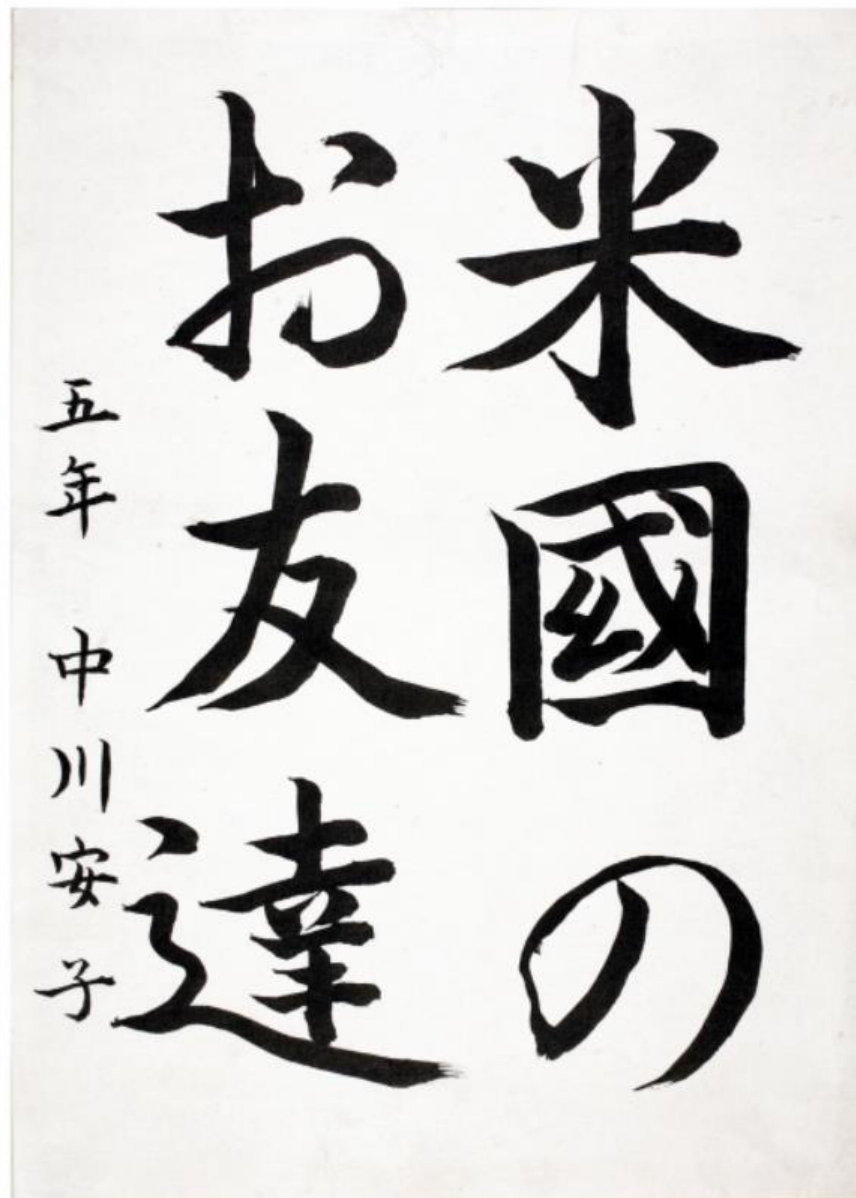 米國の
お友達
五年 中川安子